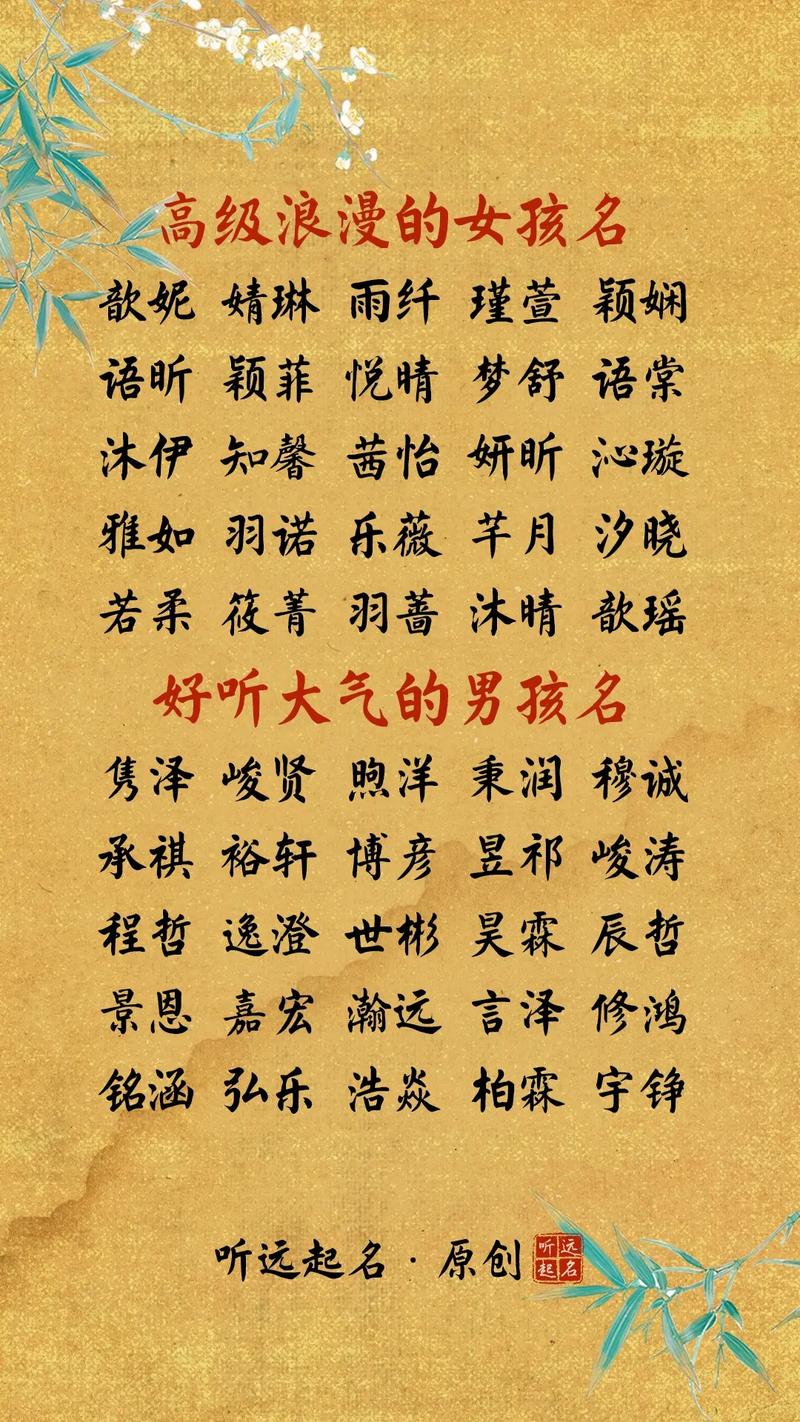 高级浪漫的女孩名
歆妮 婧琳 雨纤 瑾萱 颖娴
语昕 颖菲 悦晴 梦舒 语棠
沐伊 知馨 茜怡 妍昕 沁璇
雅如 羽诺 乐薇 芊月 汐晓
若柔 筱菁 羽蔷 沐晴 歆瑶
好听大气的男孩名
隽泽 峻贤 煦洋 秉润 穆诚
承祺 裕轩 博彦 昱祁 峻涛
程哲 逸澄 世彬 昊霖 辰哲
景恩 嘉宏 瀚远 言泽 修鸿
铭涵 弘乐 浩焱 柏霖 宇铮
听远起名·原创
听远
起名